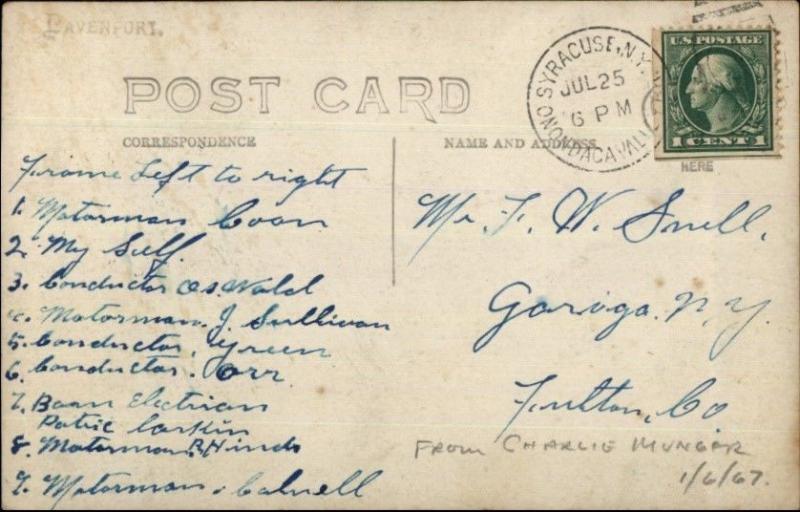 DAVENPORT.
POST CARD
CORRESPONDENCE
NAME AND ADDRESS
HERE
SYRACUSE, N.Y.
JUL 25
6 PM
ONONDAGA VALL
U.S. POSTAGE
1 CENT 1
Frome Left to right
1. Motorman Coon
2. My Self.
3. Conductor Oswald
4. Motorman. J. Sullivan
5. Conductor. Green
6. Conductor. Orr
7. Barn Electrian
Patric Larkin
8. Motorman R. Hinds
9. Motorman. Calnell
Mr. F. W. Snell,
Garoga. N. Y.
Fulton, Co.
FROM CHARLIE MUNGER
1/6/67.